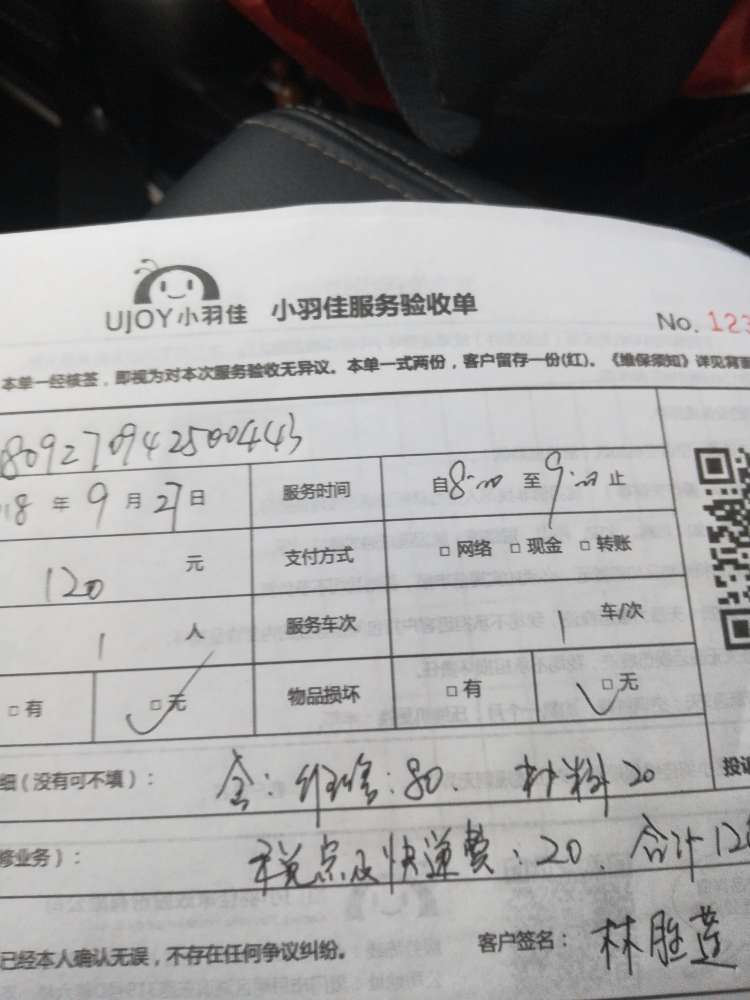 UJOY小羽佳 小羽佳服务验收单
No. 123
本单一经核签，即视为对本次服务验收无异议。本单一式两份，客户留存一份(红)。《维保须知》详见背面
809270942500443
18 年 9 月 27 日 服务时间 自8:00 至9:00止
120 元 支付方式 □ 网络 □ 现金 □ 转账
1 人 服务车次 1 车/次
□ 有 □ 无 物品损坏 □ 有 □ 无
细（没有可不填）： 含：维修：80. 材料20
投诉
修业务）： 税点及快递费：20、合计120
已经本人确认无误，不存在任何争议纠纷。 客户签名：林胜莲